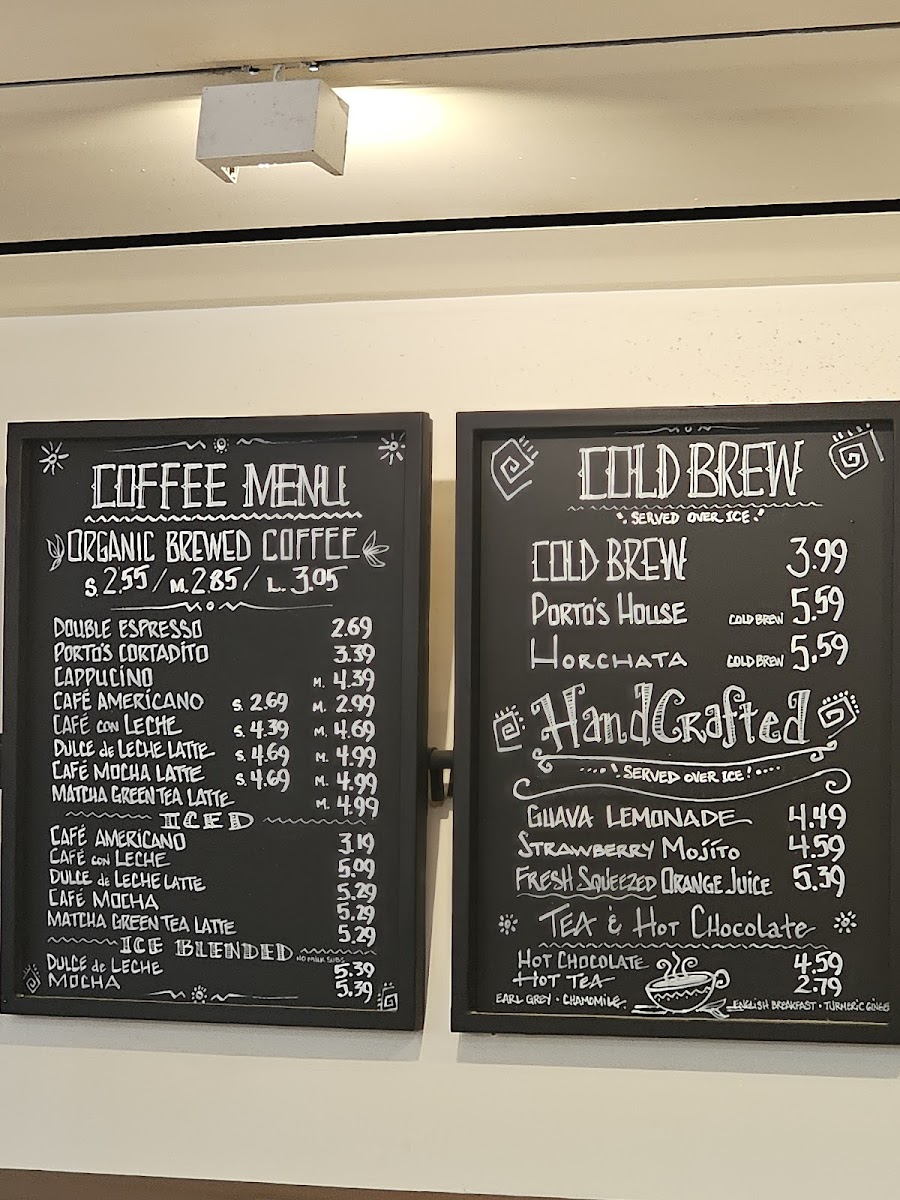 COFFEE MENU
ORGANIC BREWED COFFEE
S. 2.55 / M. 2.85 / L. 3.05
DOUBLE ESPRESSO 2.69
PORTO'S CORTADITO 3.39
CAPPUCINO M. 4.39
CAFÉ AMERÍCANO S. 2.69 M. 2.99
CAFÉ CON LECHE S. 4.39 M. 4.69
DULCE de LECHE LATTE S. 4.69 M. 4.99
CAFÉ MOCHA LATTE S. 4.69 M. 4.99
MATCHA GREEN TEA LATTE M. 4.99
ICED
CAFÉ AMERICANO 3.19
CAFÉ CON LECHE 5.09
DULCE de LECHE LATTE 5.29
CAFÉ MOCHA 5.29
MATCHA GREEN TEA LATTE 5.29
ICE BLENDED NO MILK SUBS
DULCE de LECHE 5.39
MOCHA 5.39
COLD BREW
SERVED OVER ICE
COLD BREW 3.99
PORTO'S HOUSE COLD BREW 5.59
HORCHATA COLD BREW 5.59
HandCrafted
SERVED OVER ICE!
GUAVA LEMONADE 4.49
STRAWBERRY MOJÍTO 4.59
FRESH SQUEEZED ORANGE JUICE 5.39
TEA & HOT CHOCOLATE
HOT CHOCOLATE 4.59
HOT TEA 2.79
EARL GREY · CHAMOMILE ENGLISH BREAKFAST · TURMERIC GINGE